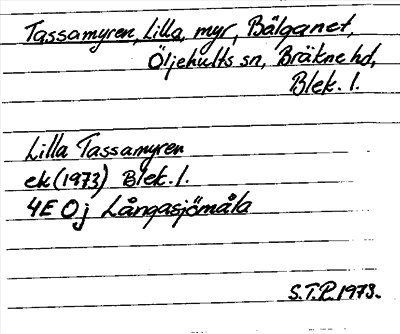 Tassamyren, Lilla, myr, Bälganet,
Öljehults sn, Bräkne hd,
Blek. l.
Lilla Tassamyren
ek (1973) Blek. l.
4E 0j Långasjömåla
S.T.R. 1973.